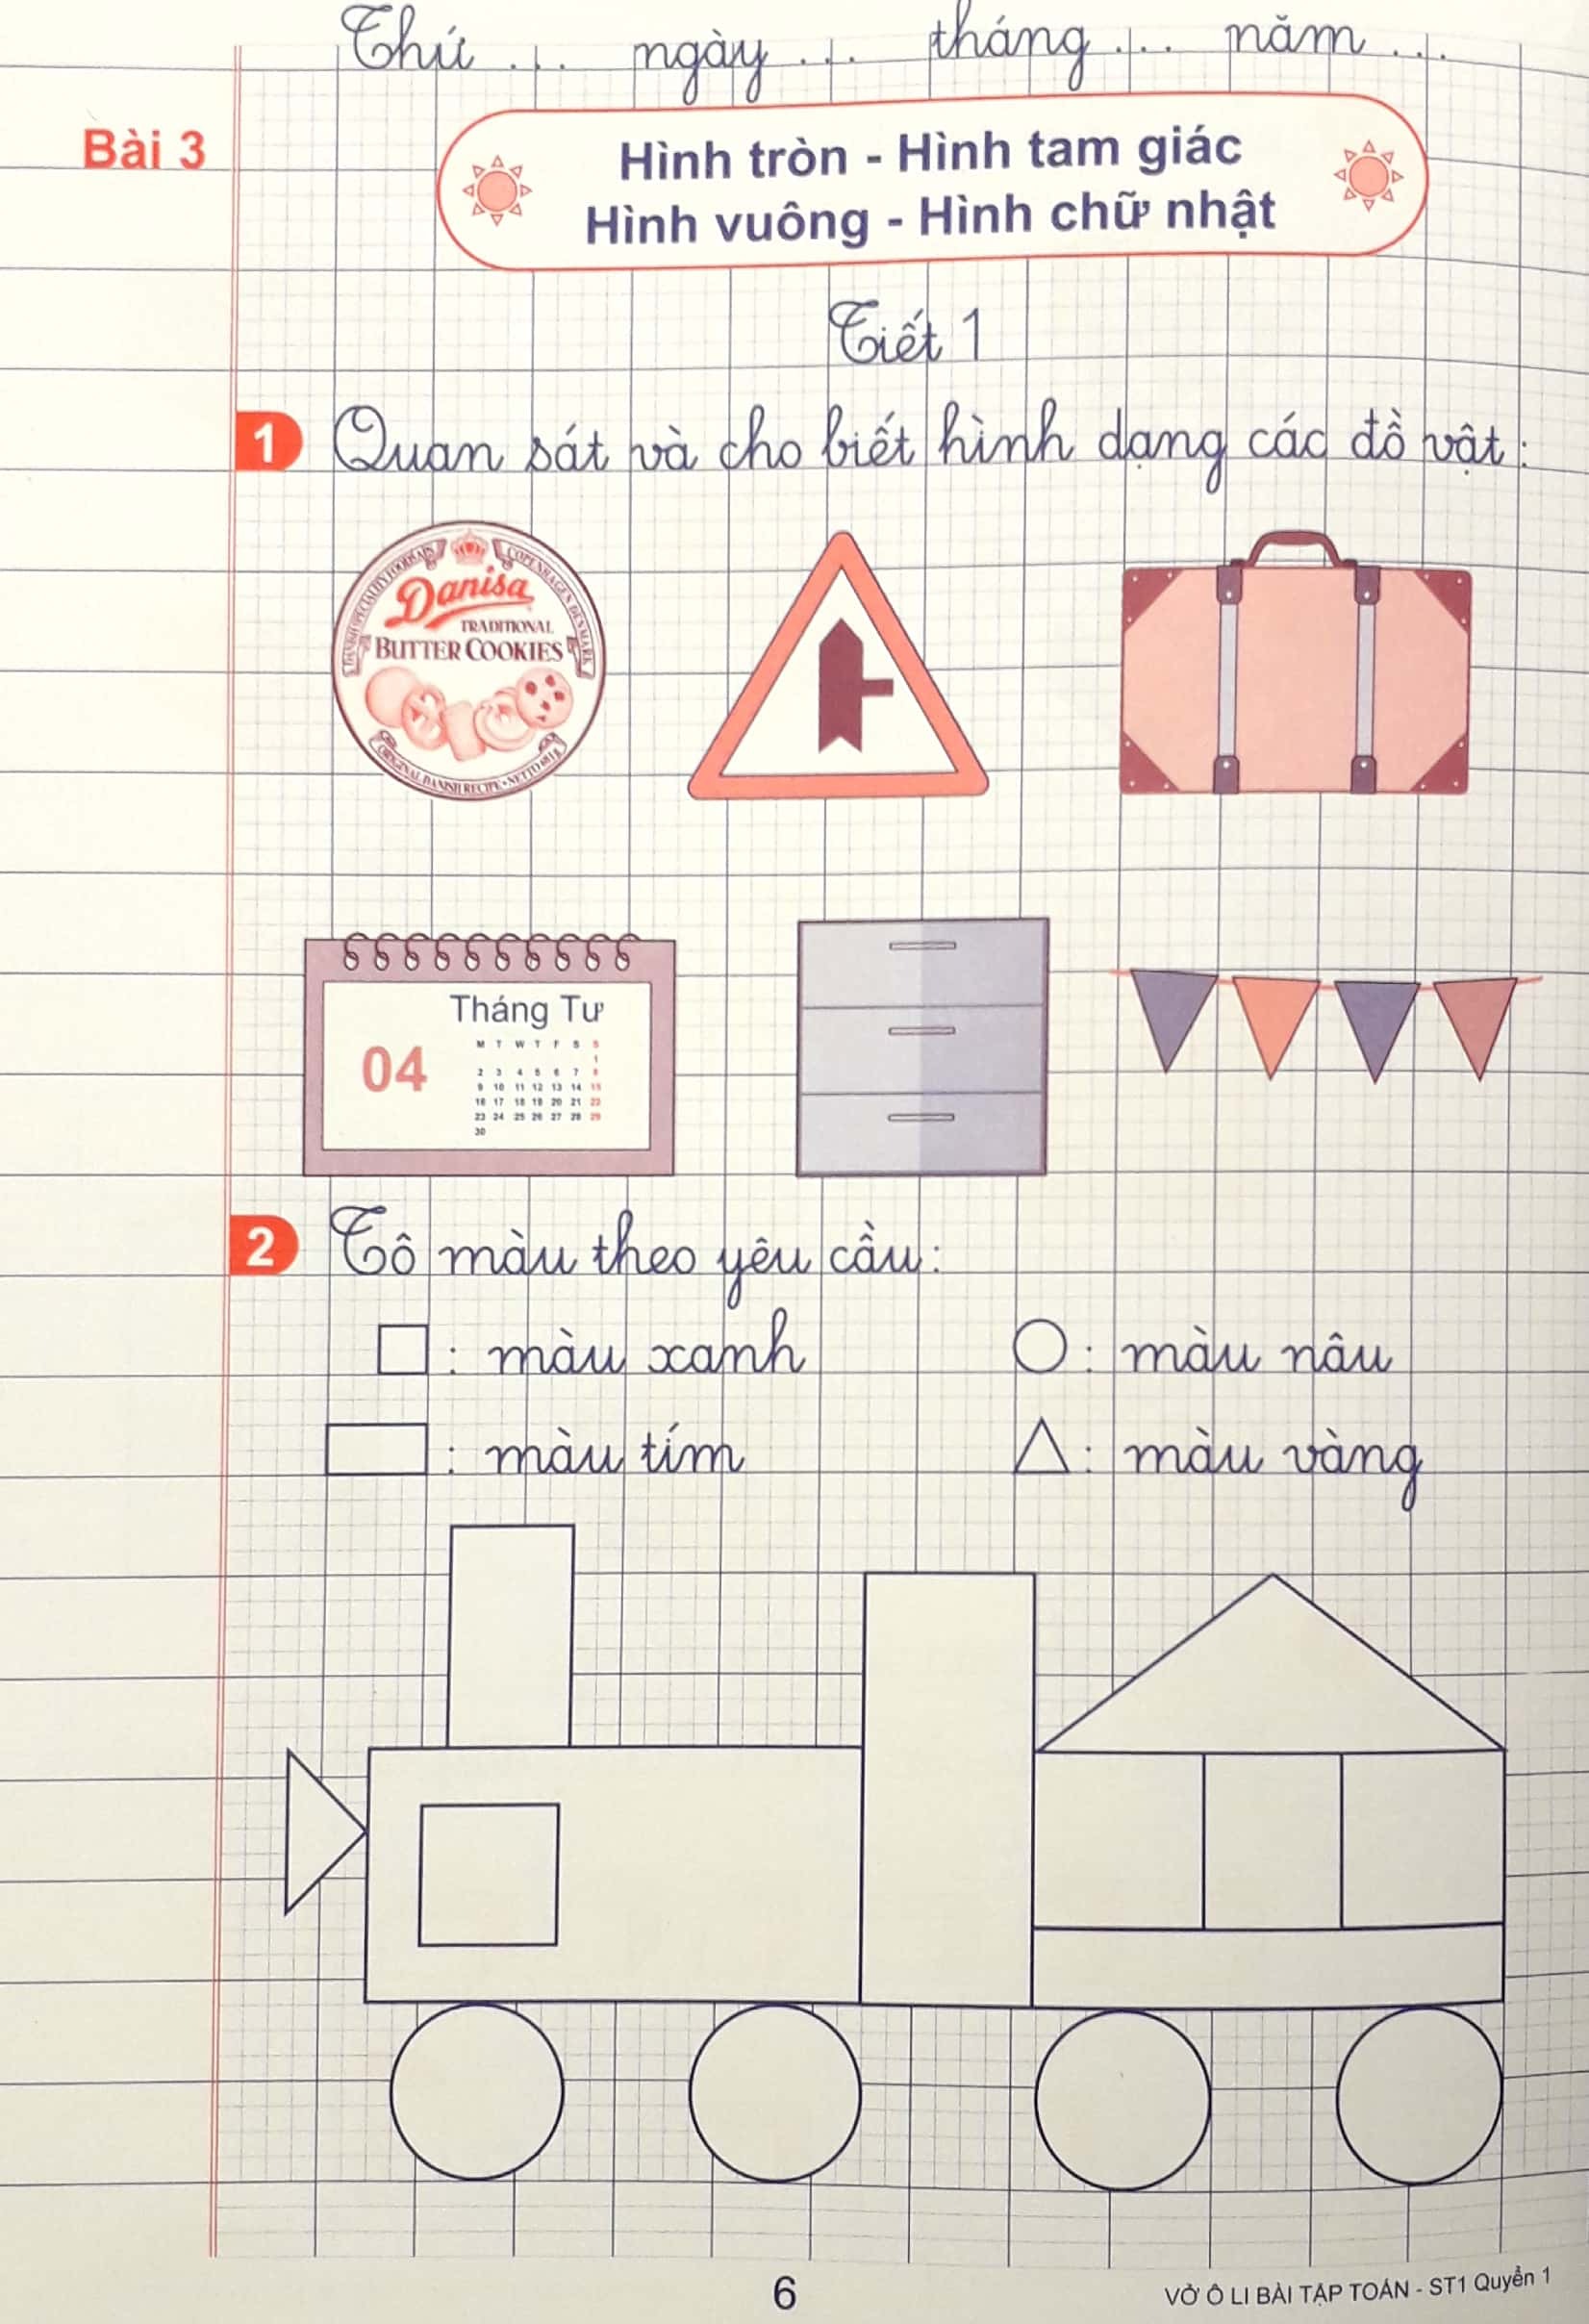 Thứ ... ngày ... tháng ... năm ...
Bài 3
Hình tròn - Hình tam giác
Hình vuông - Hình chữ nhật
Tiết 1
1 Quan sát và cho biết hình dạng các đồ vật:
DANISH SPECIALITY FOODS A/S
COPENHAGEN DENMARK
Danisa
TRADITIONAL
BUTTER COOKIES
ORIGINAL DANISH RECIPE • NETTO
Tháng Tư
04
M T W T F S S
1
2 3 4 5 6 7 8
9 10 11 12 13 14 15
16 17 18 19 20 21 22
23 24 25 26 27 28 29
30
2 Tô màu theo yêu cầu:
: màu xanh
: màu nâu
: màu tím
: màu vàng
6
VỞ Ô LI BÀI TẬP TOÁN - ST1 Quyển 1